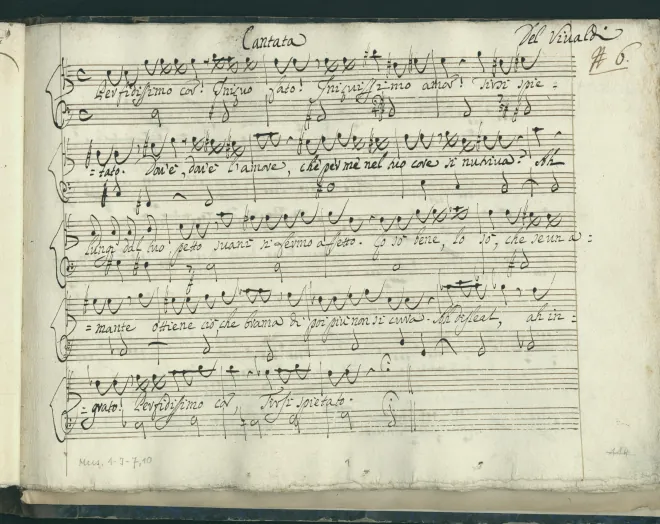 Cantata
Del Vivaldi
# 6.
Perfidissimo cor! Iniquo fato! Iniquissimo amor! Tirsi spie =
= tato. Dov'è, dov'è l'amore, che per mè nel tuo core si nudriva? Ah
lungi dal tuo petto svanì sì fermo affetto. Io sò bene, Io sò, che se un a =
= mante ottiene ciò, che brama di poi più non si cura. Ah disleal, ah in =
= grato! Perfidissimo cor, Tirsi spietato.
Mus. 1-J-7,10